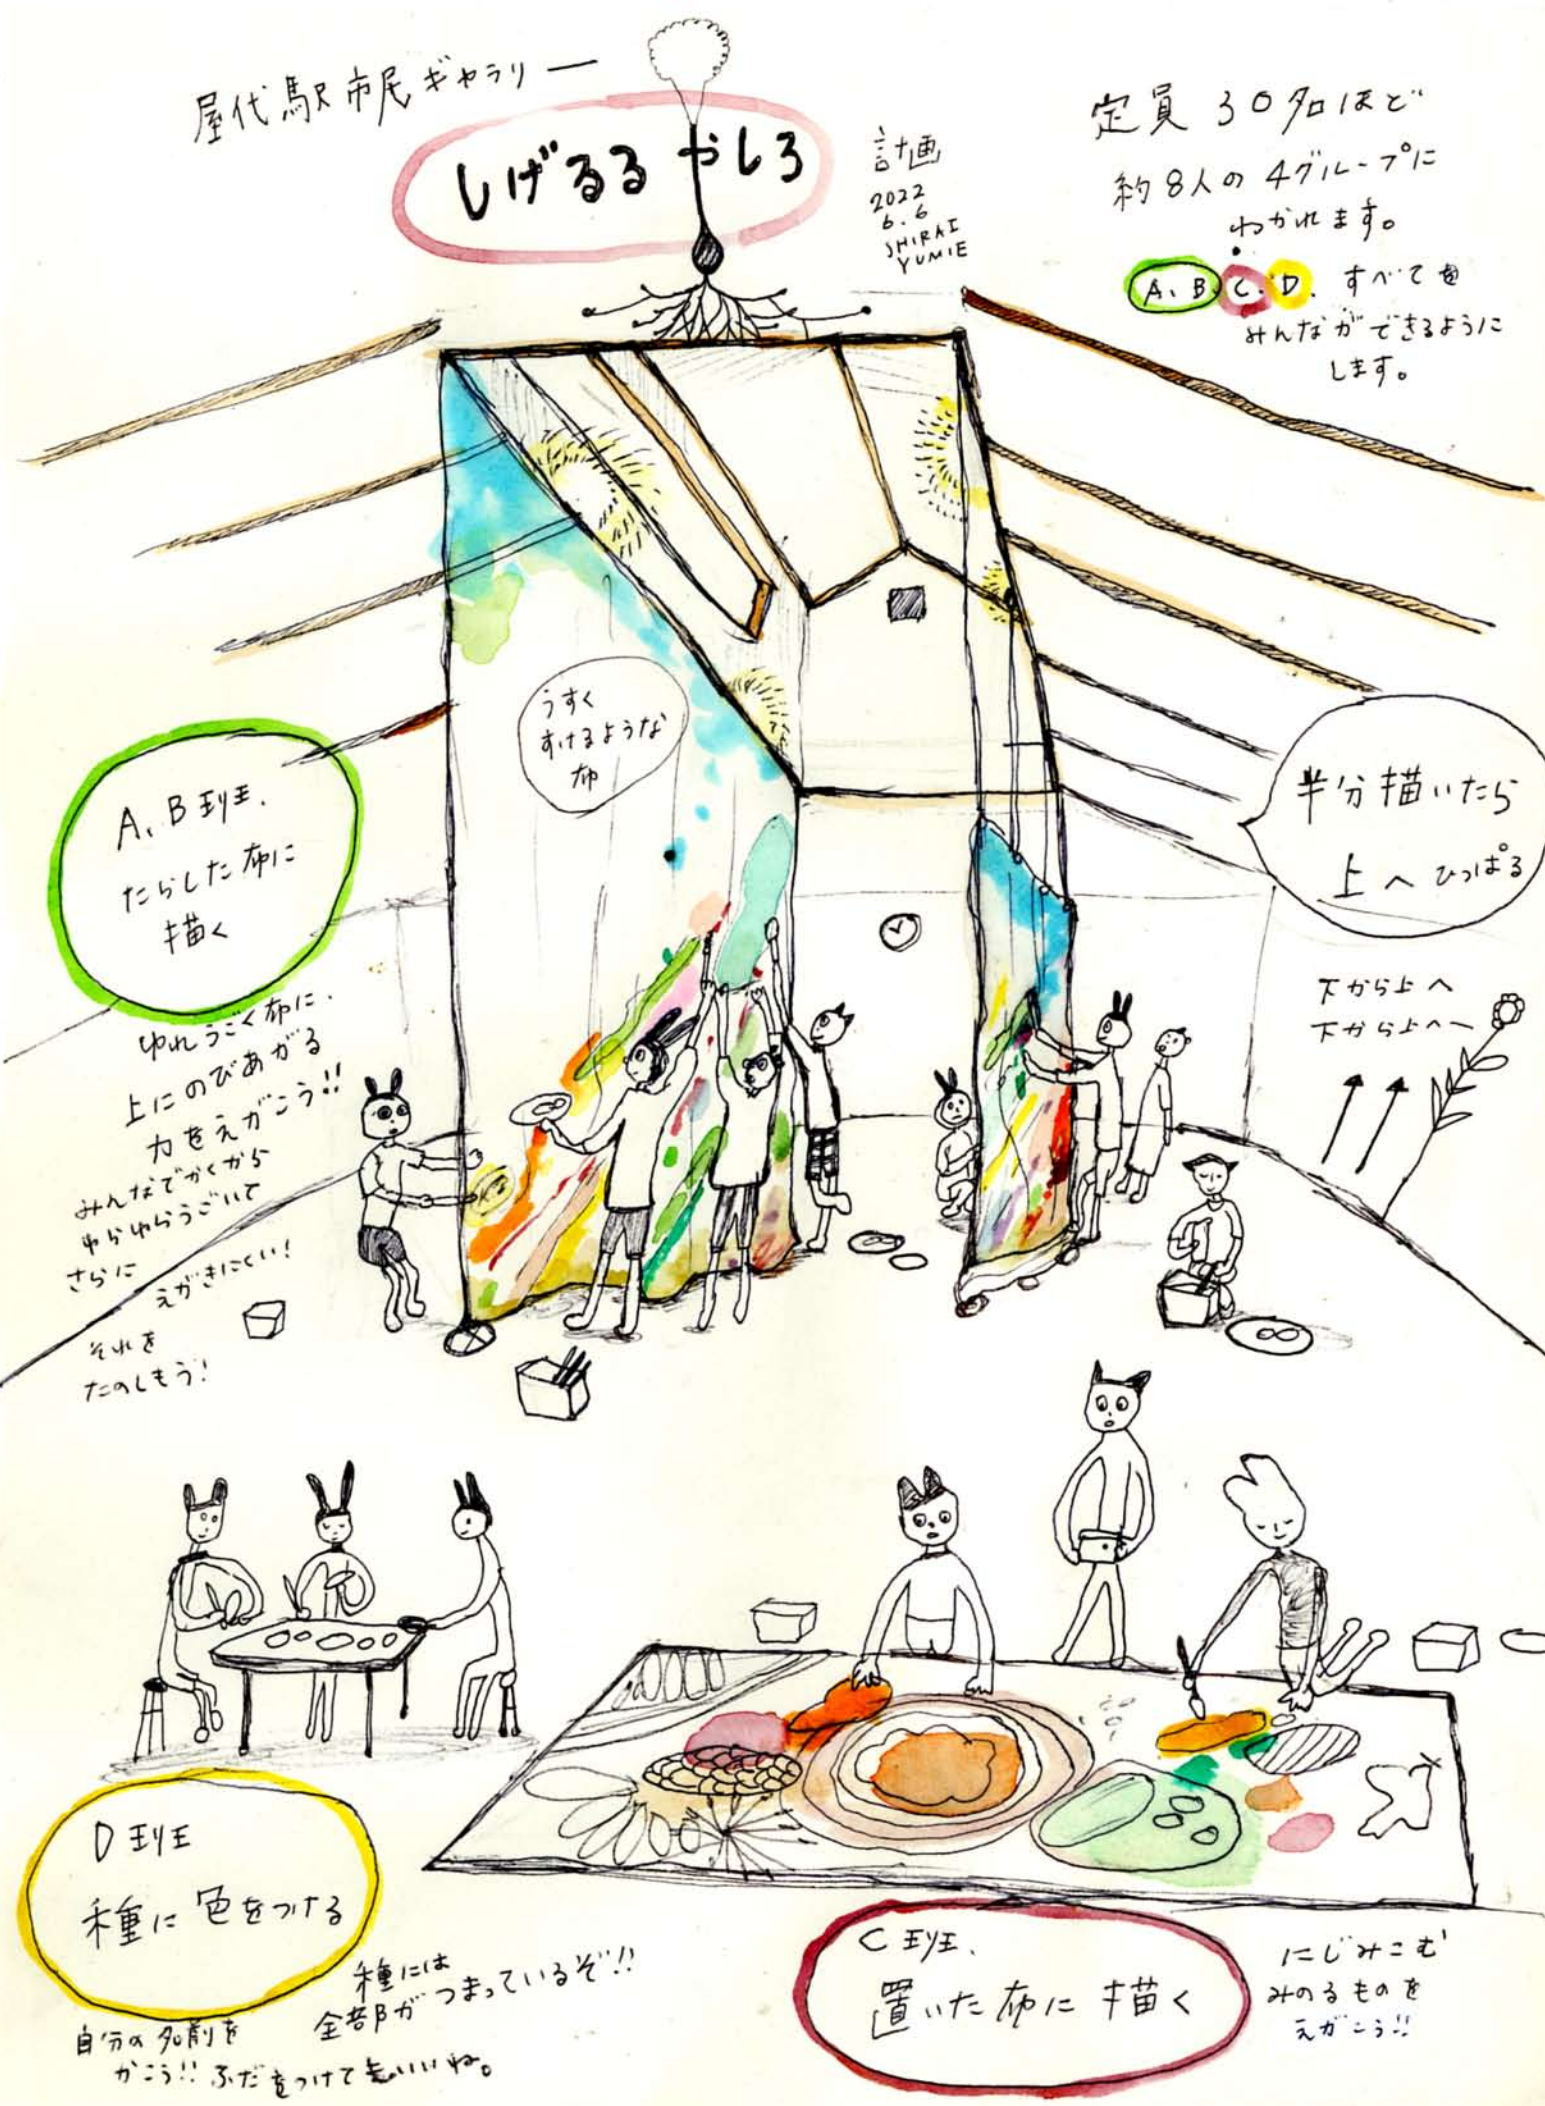 屋代駅市民ギャラリー
しげるる やしろ
計画
2022
6.6
SHIRAI
YUMIE
定員 30名ほど
約8人の 4グループに
わかれます。
A、B、C、D、すべてを
みんなができるように
します。
うすく
すけるような
布
A、B班、
たらした布に
描く
ゆれうごく布に、
上にのびあがる
力をえがこう!!
みんなでかくから
ゆらゆらうごいて
さらに
えがきにくい!
それを
たのしもう!
半分描いたら
上へひっぱる
下から上へ
下から上へー
D班
種に色をつける
種には
全部がつまっているぞ!!
自分の名前を
かこう!! ふだをつけて いいね。
C班、
置いた布に描く
にじみこむ
みのるものを
えがこう!!